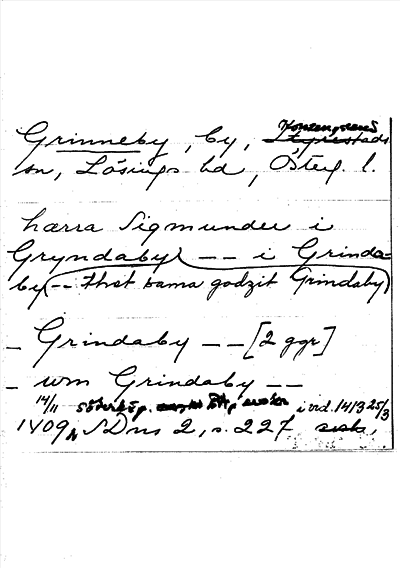 Grinneby, by, Konungsund
sn, Lösings hd, Österg. l.
hærra Sigmunder i
Gryndaby -- i Grinda-
by (-- thet sama godzit Grindaby)
- Grindaby -- [2 ggr]
- um Grindaby --
14/11 Söderköp. i vid. 1413 25/3
1409, SDns 2, s. 227